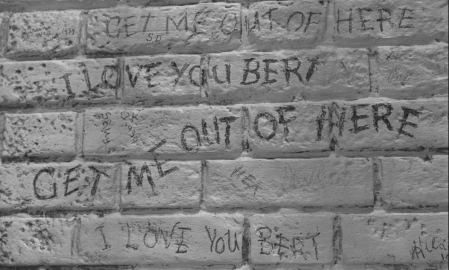 GET ME OUT OF HERE
I LOVE YOU BERT
GET ME OUT OF HERE
I LOVE YOU BERT